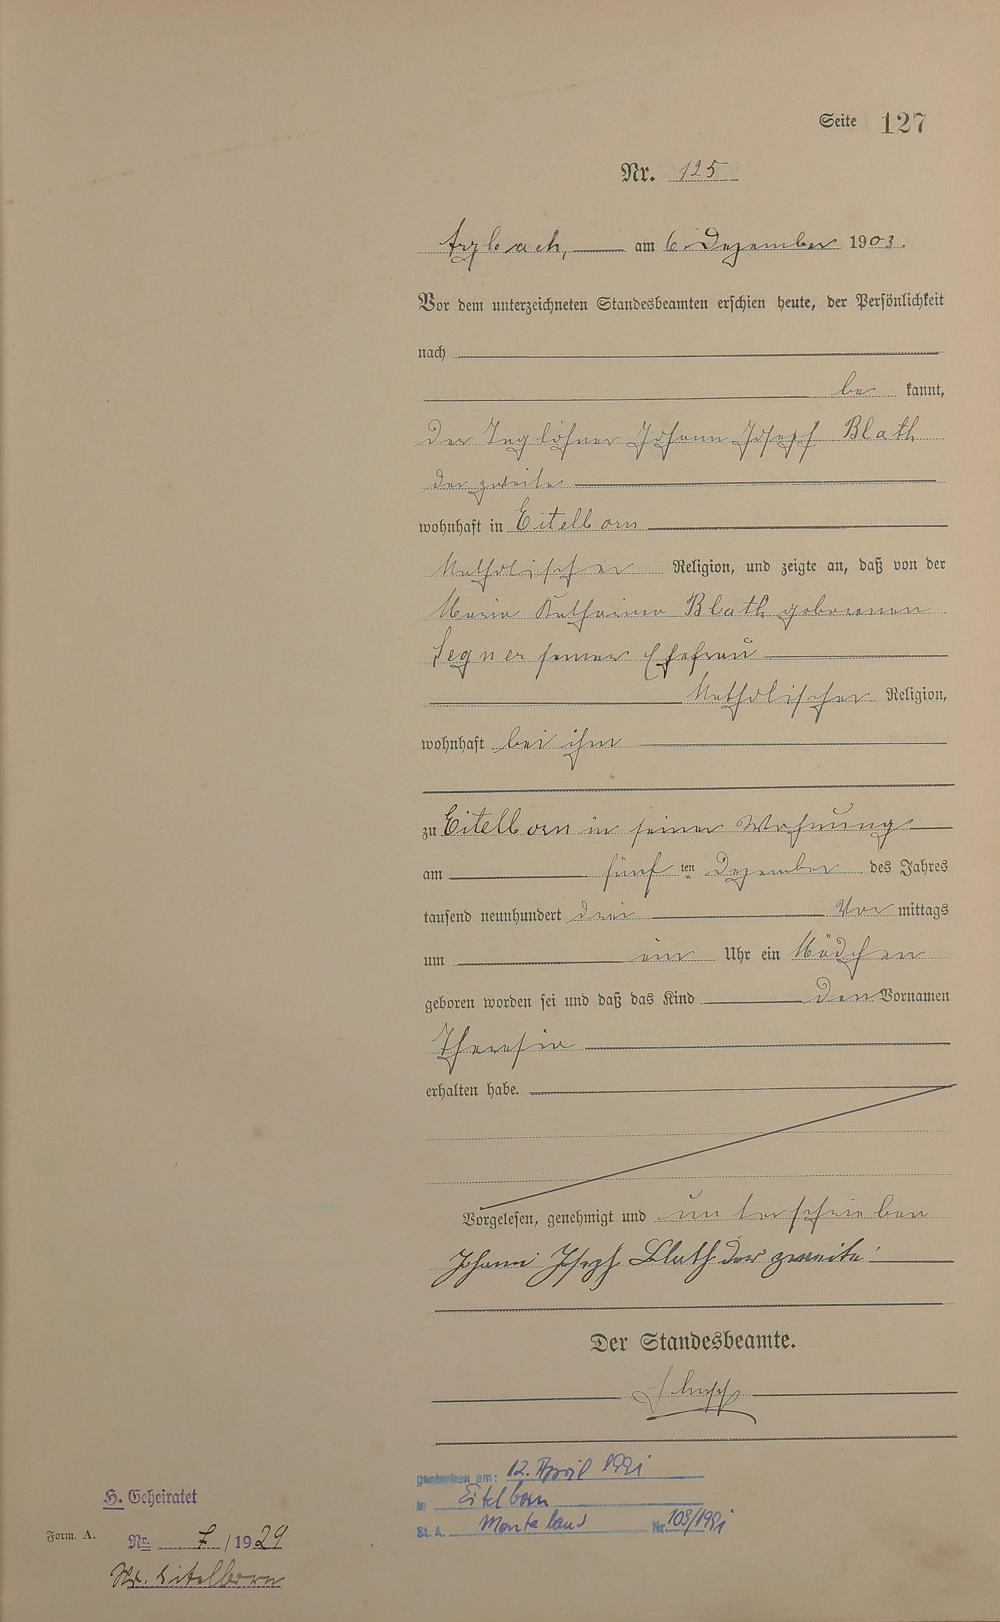 Seite 127
Nr. 125
Arzbach, am 6. Dezember 1903.
Vor dem unterzeichneten Standesbeamten erschien heute, der Persönlichkeit
nach
be kannt,
der Taglöhner Johann Josepf Blath
der zweite
wohnhaft in Eitelborn
katholischer Religion, und zeigte an, daß von der
Maria Katharina Blath geborenen
Segner seiner Ehefrau
katholischer Religion,
wohnhaft bei ihm
zu Eitelborn in seiner Wohnung
am fünf ten Dezember des Jahres
tausend neunhundert drei Vor mittags
um ein Uhr ein Mädchen
geboren worden sei und daß das Kind den Vornamen
Theresia
erhalten habe.
Vorgelesen, genehmigt und unterschrieben
Johann Joseph Blath der zweite
Der Standesbeamte.
gestorben am: 12. April 1991
in Eitelborn
St. A. Montabaur Nr. 103/1991
H. Geheiratet
Form. A. Nr. 7 / 1929
Eitelborn